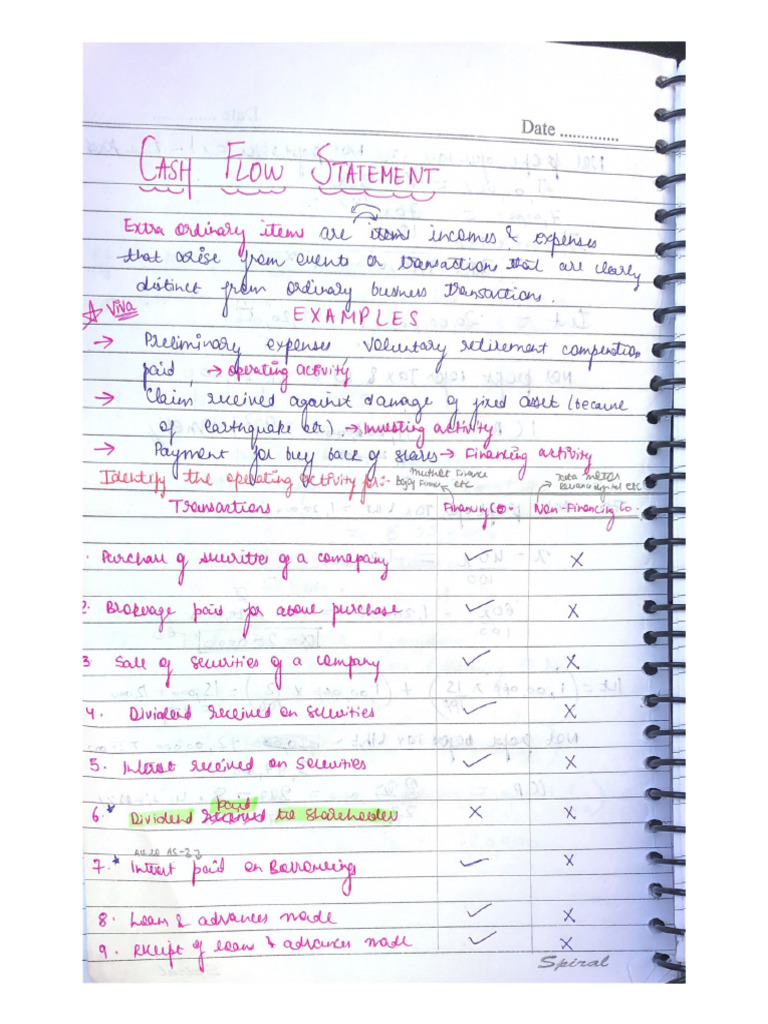 Date ..............
CASH FLOW STATEMENT
Extra ordinary item are item incomes & expenses
that arise from events or transactions that are clearly
distinct from ordinary business transactions.
Viva EXAMPLES
→ Preliminary expenses voluntary retirement compenstion
paid, → operating activity
→ Claim received against damage of fixed asset (because
of earthquake etc). → Investing activity
→ Payment for buy back of shares → Financing activity
Identify the operating activity for:-
Muthut Finance
Bajaj Finance etc
Tata motors
Reliance digital etc
Transactions Financing Co. Non-Financing Co.
1. Purchase of securities of a comapany ✓ ×
2. Brokerage paid for above purchase ✓ ×
3. Sale of securities of a company ✓ ×
4. Dividend received on securities ✓ ×
5. Interest received on securities ✓ ×
paid
6.* Dividend received to shareholder × ×
AS-3
7.* Interest paid on Borrowing ✓ ×
8. Loan & advances made ✓ ×
9. Receipt of loan & advances made ✓ ×
Spiral